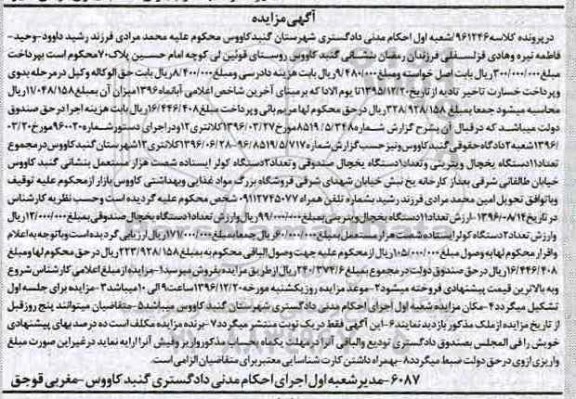 آگهی مزایده
درپرونده کلاسه ۹۶۱۲۴۶ شعبه اول احکام مدنی دادگستری شهرستان گنبدکاووس محکوم علیه محمد مرادی فرزند رشید داوود-وحید-
فاطمه نیره وهادی قزلسفلی فرزندان رمضان بنشانی گنبد کاووس روستای قوئین لی کوچه امام حسین پلاک۷۰ محکوم است بپرداخت
مبلغ۳۰۰/۰۰۰/۰۰۰ریال بابت اصل خواسته ومبلغ۹/۴۸۰/۰۰۰ریال بابت هزینه دادرسی ومبلغ۸/۴۰۰/۰۰۰ریال بابت حق الوکاله وکیل در مرحله بدوی
وپرداخت خسارت تاخیر تادیه از تاریخ۱۳۹۵/۱۲/۲۰تا یوم الادا که بر مبنای آخرین شاخص اعلامی آبانماه۱۳۹۶ میزان آن بمبلغ۱۷/۰۴۸/۱۵۸ریال
محاسبه میشود جمعا بمبلغ۳۲۸/۹۲۸/۱۵۸ریال درحق محکوم لها مریم بائی وپرداخت مبلغ۱۶/۴۴۶/۴۰۸ریال بابت هزینه اجرا در حق صندوق
دولت میباشد که در قبال آن بشرح گزارش شماره۸۵۱۹/۵/۳۴۸مورخ۱۳۹۶/۰۳/۲۷کلانتری۱۲ودراجرای دستورشماره۹۶۰۰۲۰مورخ۰۳/۲۰/
۱۳۹۶شعبه۲دادگاه حقوقی گنبدکاووس ونیز حسب گزارش شماره۹۶/۸۵۱۹/۵/۷۱۷-۱۳۹۶/۰۶/۲۸کلانتری۱۲شهرستان گنبد کاووس درمجموع
تعداد۱۱دستگاه یخچال ویترینی وتعداد۱دستگاه یخچال صندوقی وتعداد۲دستگاه کولر ایستاده شصت هزار مستعمل بنشانی گنبد کاووس
خیابان طالقانی شرقی بعداز کارخانه یخ نبش خیابان شهدای شرقی فروشگاه بزرگ مواد غذایی وبهداشتی کاووس بازار از محکوم علیه توقیف
وباتوافق تحویل امین محمد مرادی فرزند رشید بشماره تلفن همراه ۰۹۱۱۲۷۴۵۰۷۷ شخص محکوم علیه گردیده است وحسب نظریه کارشناس
در تاریخ۱۳۹۶/۰۸/۱۴-ارزش تعداد۱۱دستگاه یخچال ویترینی بمبلغ۹۹/۰۰۰/۰۰۰ریال وارزش تعداد۱دستگاه یخچال صندوقی بمبلغ۱۲/۰۰۰/۰۰۰ریال
وارزش تعداد۲دستگاه کولر ایستاده شصت هزار مستعمل بمبلغ۶۰/۰۰۰/۰۰۰ریال جمعا بمبلغ۱۷۷/۰۰۰/۰۰۰ریال ارزیابی گردیده است وباتوجه به اعلام
واقرار محکوم لها به وصول مبلغ۱۰۵/۰۰۰/۰۰۰ریال از محکوم علیه جهت وصول الباقی محکوم به بمبلغ۲۲۳/۹۲۸/۱۵۸ریال درحق محکوم لها ومبلغ
۱۶/۴۴۶/۴۰۸ریال در حق صندوق دولت درمجموع بمبلغ۲۴۰/۳۷۴/۶ریال از طریق مزایده بفروش میرسد۱-مزایده از مبلغ اعلامی کارشناس شروع
وبه بالاترین قیمت پیشنهادی فروخته میشود۲-موعد مزایده روز یکشنبه مورخه۱۳۹۶/۱۲/۲۰ ساعت۹الی۱۰میباشد۳-مزایده برای جلسه اول
تشکیل میگردد۴-مکان مزایده شعبه اول اجرای احکام مدنی دادگستری شهرستان گنبد کاووس میباشد۵-متقاضیان میتوانند پنج روز قبل
از تاریخ مزایده از ملک مذکور بازدید نمایند۶-این آگهی فقط در یک نوبت منتشر میگردد۷-برنده مزایده مکلف است ده درصد بهای پیشنهادی
خویش را فی المجلس بصندوق دادگستری تودیع والباقی آنرا در مهلت یکماه بحساب مذکور واریز وفیش آنرا ارایه نماید در غیر این صورت مبلغ
واریزی از وی در حق دولت ضبط میگردد۸-بهمراه داشتن کارت شناسایی معتبر برای متقاضیان الزامی است.
۶۰۸۷-مدیر شعبه اول اجرای احکام مدنی دادگستری گنبد کاووس-مغربی قوجق